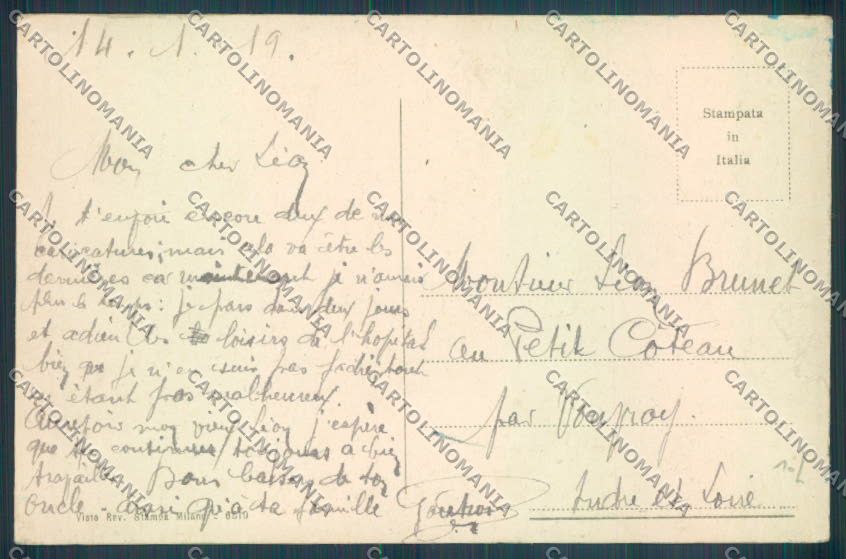 14. 1. 19.
Mon cher Léon
t'envoie encore deux de mes
caricatures, mais cela va être les
dernières car maintenant je n'aurais
plus le temps : je pars dans deux jours
et adieu les loisirs de l'hopital
bien que je n'en suis pas fâché tout
étant pas malheureux
Au revoir mon vieux Léon j'espère
que tu continues toujours a bien
travailler Bons baisers de ton
oncle ainsi qu'à ta famille
Visto Rev. Stampa Milano - 6510
Stampata
in
Italia
Monsieur Léon Brunet
au Petit Côteau
par Vouvray
Indre et Loire
CARTOLINOMANIA